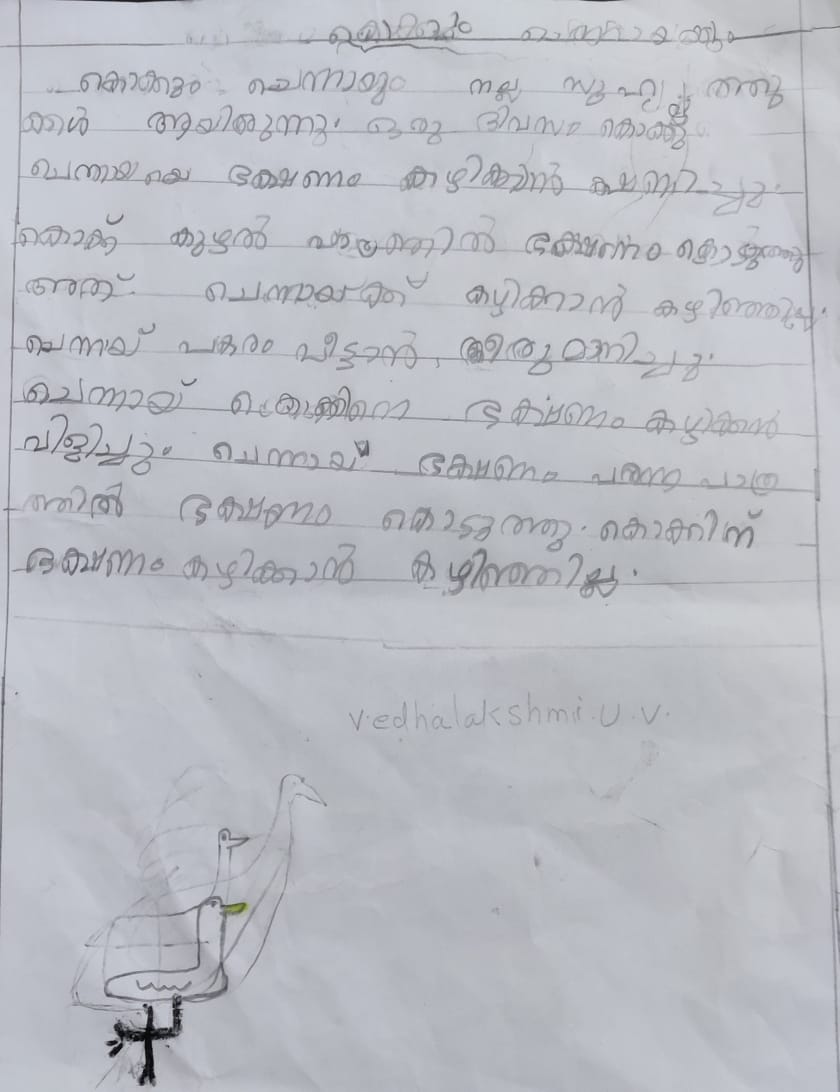 കൊക്കും ചെന്നായയും
കൊക്കും ചെന്നായും നല്ല സുഹൃത്തു
ക്കൾ ആയിരുന്നു. ഒരു ദിവസം കൊക്ക്
ചെന്നായയെ ഭക്ഷണം കഴിക്കാൻ ക്ഷണിച്ചു.
കൊക്ക് കുഴൽ പാത്രത്തിൽ ഭക്ഷണം കൊടുത്തു
അത് ചെന്നായക്ക് കഴിക്കാൻ കഴിഞ്ഞില്ല.
ചെന്നായ് പകരം വീട്ടാൻ തീരുമാനിച്ചു.
ചെന്നായ് കൊക്കിനെ ഭക്ഷണം കഴിക്കാൻ
വിളിച്ചു. ചെന്നായ ഭക്ഷണം പരന്ന പാത്ര
ത്തിൽ ഭക്ഷണം കൊടുത്തു. കൊക്കിന്
ഭക്ഷണം കഴിക്കാൻ കഴിഞ്ഞില്ല.
Vedhalakshmi.U.V.